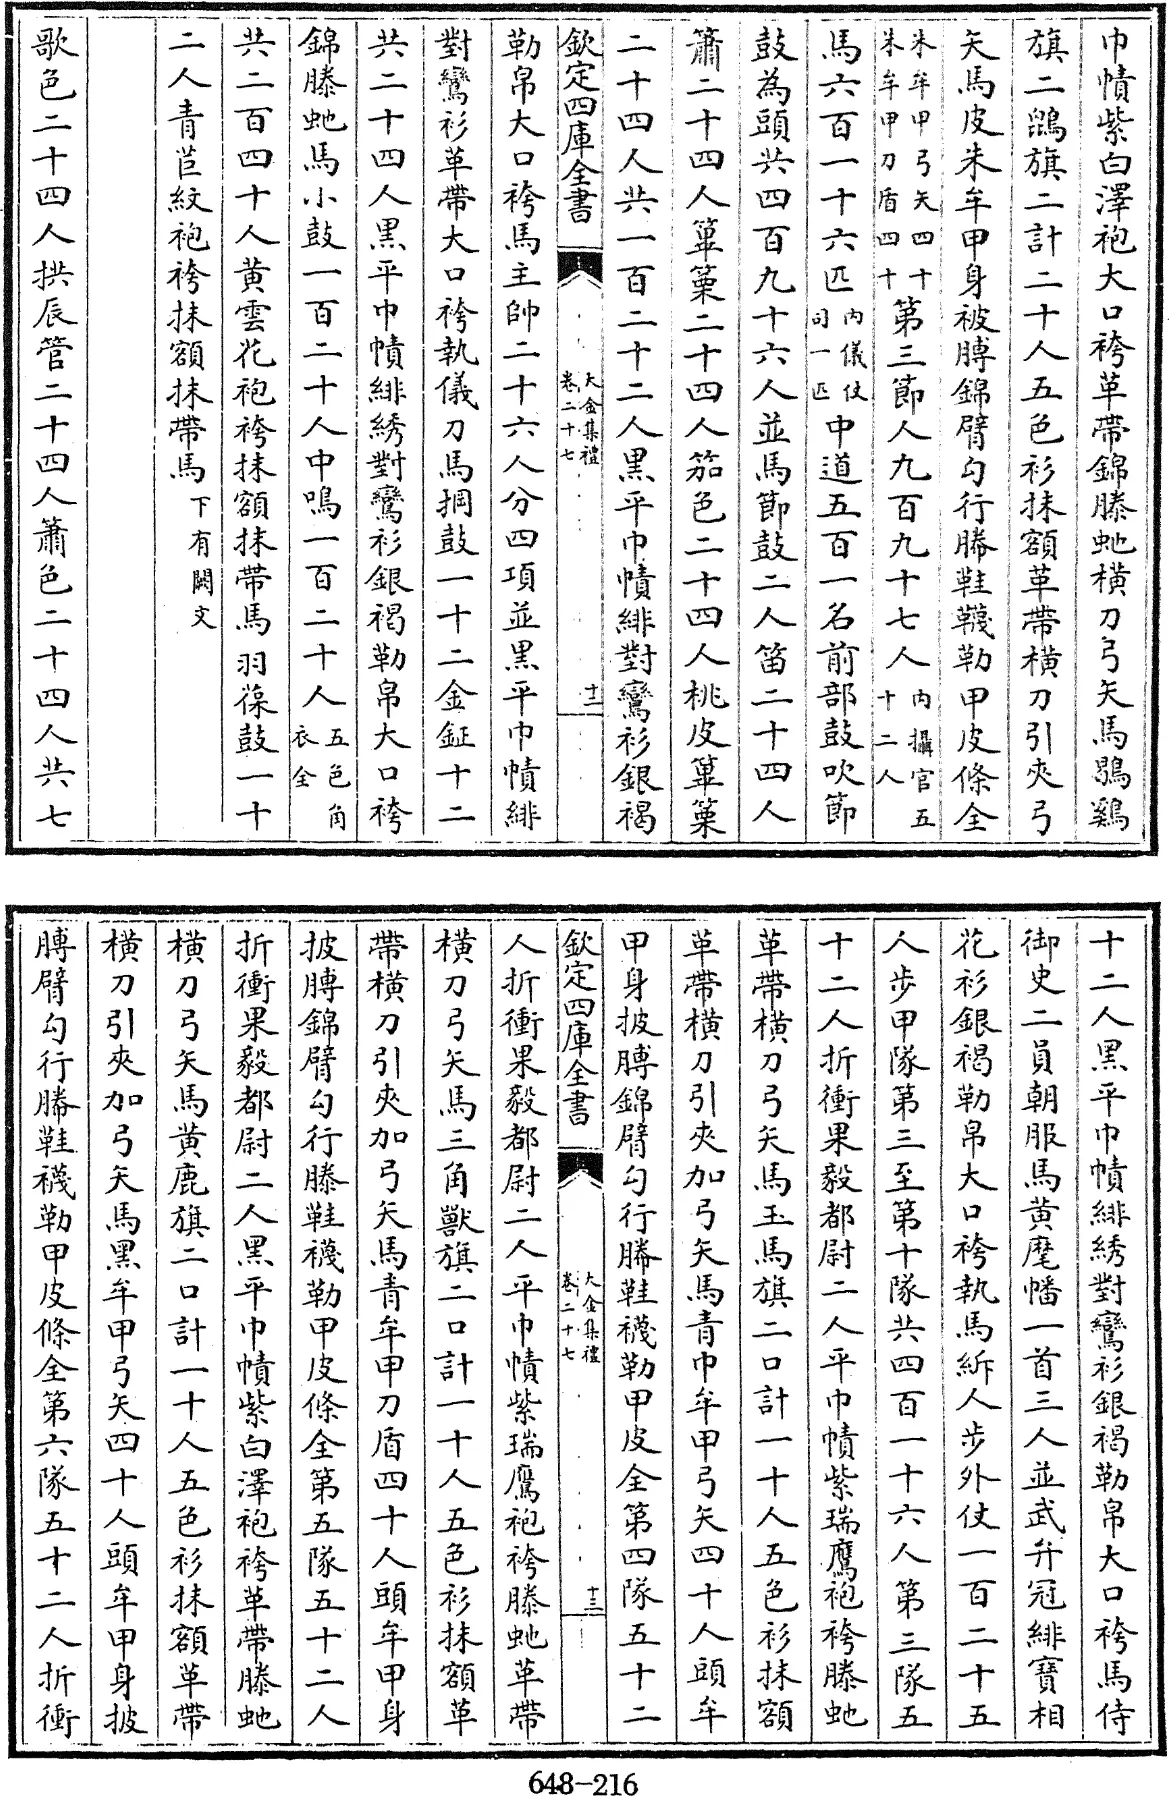 巾幘紫白澤袍大口袴革帶錦滕虵橫刀弓矢馬鶡鷄
旗二鵾旗二計二十人五色衫抹額革帶橫刀引夾弓
矢馬皮朱牟甲身被膊錦臂勾行縢鞋韈勒甲皮條全
朱牟甲弓矢四十
朱牟甲刀盾四十
第三節人九百九十七人
内攝官五
十二人
馬六百一十六匹
内儀仗
司一匹
中道五百一名前部鼓吹節
鼓為頭共四百九十六人並馬節鼓二人笛二十四人
簫二十四人篳篥二十四人笳色二十四人桃皮篳篥
二十四人共一百二十二人黑平巾幘緋對鸞衫銀褐
欽定四庫全書
大金集禮
卷二十七
十二
勒帛大口袴馬主帥二十六人分四項並黑平巾幘緋
對鸞衫革帶大口袴執儀刀馬掆鼓一十二金鉦十二
共二十四人黑平巾幘緋綉對鸞衫銀褐勒帛大口袴
錦滕虵馬小鼓一百二十人中鳴一百二十人
五色角
衣全
共二百四十人黃雲花袍袴抹額抹帶馬羽葆鼓一十
二人青苣紋袍袴抹額抹帶馬
下有闕文
歌色二十四人拱辰管二十四人簫色二十四人共七
十二人黑平巾幘緋綉對鸞衫銀褐勒帛大口袴馬侍
御史二員朝服馬黃麾幡一首三人並武弁冠緋寶相
花衫銀褐勒帛大口袴執馬訴人步外仗一百二十五
人步甲隊第三至第十隊共四百一十六人第三隊五
十二人折衝果毅都尉二人平巾幘紫瑞鷹袍袴滕虵
革帶橫刀弓矢馬玉馬旗二口計一十人五色衫抹額
革帶橫刀引夾加弓矢馬青巾牟甲弓矢四十人頭牟
甲身披膊錦臂勾行縢鞋襪勒甲皮全第四隊五十二
欽定四庫全書
大金集禮
卷二十七
十三
人折衝果毅都尉二人平巾幘紫瑞鷹袍袴滕虵革帶
橫刀弓矢馬三角獸旗二口計一十人五色衫抹額革
帶橫刀引夾加弓矢馬青牟甲刀盾四十人頭牟甲身
披膊錦臂勾行滕鞋襪勒甲皮條全第五隊五十二人
折衝果毅都尉二人黑平巾幘紫白澤袍袴革帶滕虵
橫刀弓矢馬黃鹿旗二口計一十人五色衫抹額革帶
橫刀引夾加弓矢馬黑牟甲弓矢四十人頭牟甲身披
膊臂勾行縢鞋襪勒甲皮條全第六隊五十二人折衝
648-216